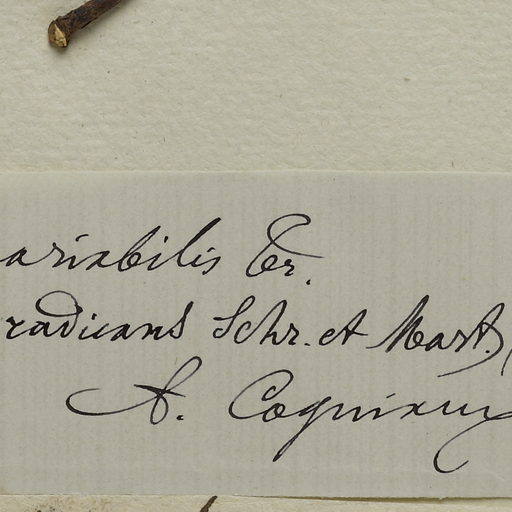 ariabilis Tr.
radicans Schr. et Mart.
A. Cogniaux